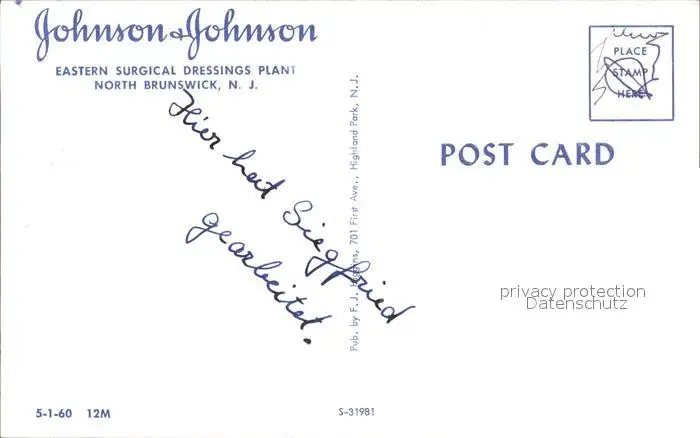 Johnson & Johnson
EASTERN SURGICAL DRESSINGS PLANT
NORTH BRUNSWICK, N. J.
Hier hat Siegfried
gearbeitet.
Pub. by F. J. Higgins, 701 First Ave., Highland Park, N. J.
PLACE
STAMP
HERE
POST CARD
privacy protection
Datenschutz
5-1-60 12M
S-31981